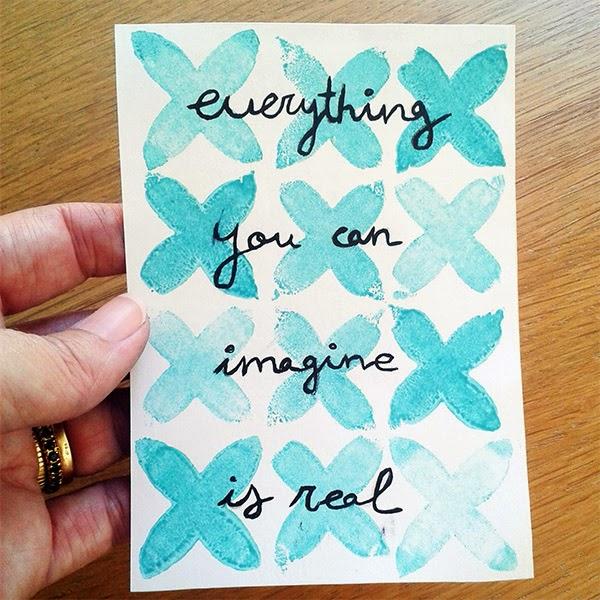 everything
you can
imagine
is real